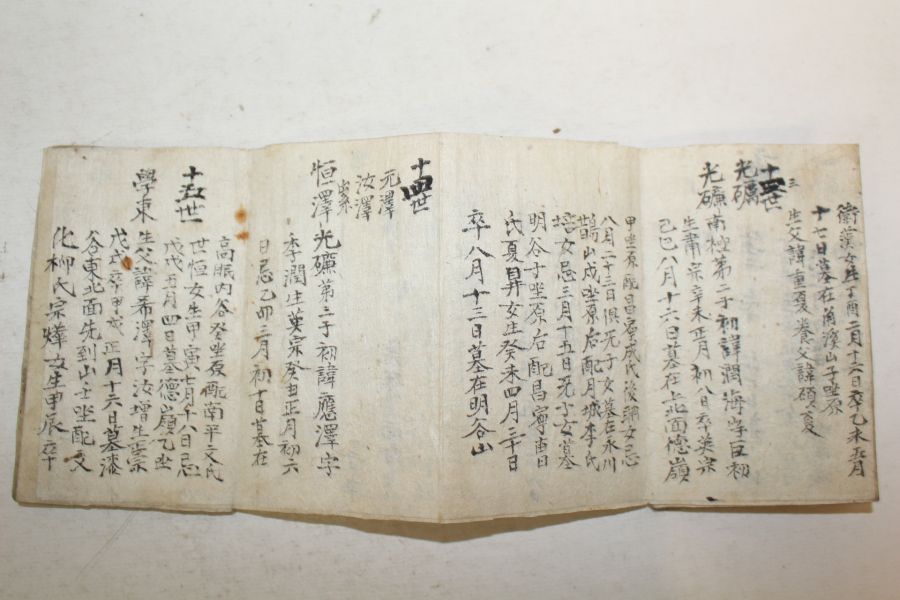 衛漢女生子酉二月十六日卒乙未五月
十七日墓在角溪山子坐原
生父諱重夏養父諱碩夏
三
十三世
光礪
光礦 南極第二子初諱潤海字臣初
生肅宗辛未正月初八日卒英宗
己巳八月十六日墓在北面德嶺
甲坐原配昌寧成氏後瑚女忌
八月二十三日俱无子女墓在永川
鵲山戌坐原后配月城李氏
培女忌三月十五日无子女墓
明谷子坐原后配昌寧曺
氏夏昇女生癸未四月三十日
卒八月十三日墓在明谷山
十四世
元澤
汝澤
出系
恒澤 光礦第三子初諱應澤字
季潤生英宗癸丑正月初六
日忌乙卯三月初十日墓在
高眼內谷癸坐原配南平文氏
世恒女生甲寅七月十八日忌
戊戌五月四日墓德嶺乙坐
十五世
學東
生父諱希澤字汝增生英宗
戊戌卒甲戌正月十六日墓漆
谷東北面先到山壬坐配文
化柳氏宗燁女生甲辰卒十